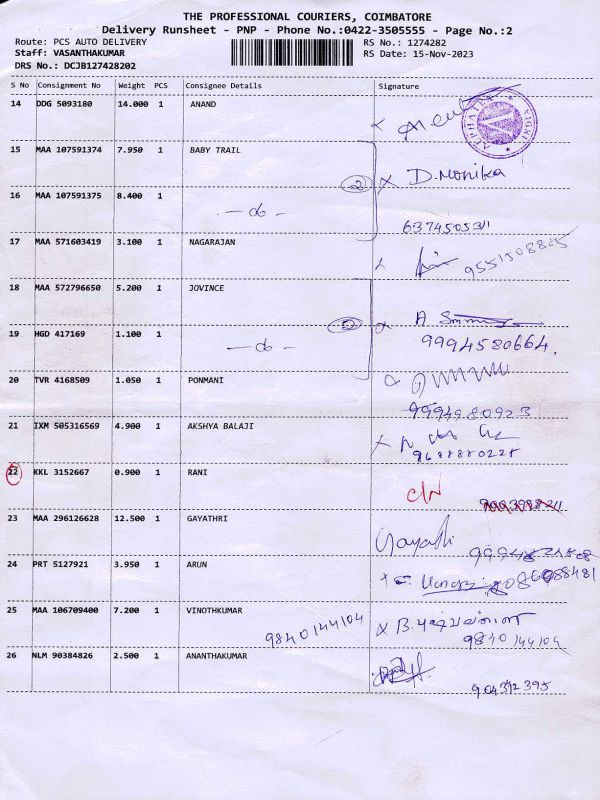 THE PROFESSIONAL COURIERS, COIMBATORE
Delivery Runsheet - PNP - Phone No.:0422-3505555 - Page No.:2
Route: PCS AUTO DELIVERY RS No.: 1274282
Staff: VASANTHAKUMAR RS Date: 15-Nov-2023
DRS No.: DCJB127428202
S No Consignment No Weight PCS Consignee Details Signature
14 DDG 5093180 14.000 1 ANAND
15 MAA 107591374 7.950 1 BABY TRAIL
2 D. Monika
16 MAA 107591375 8.400 1
- do -
6374505311
17 MAA 571603419 3.100 1 NAGARAJAN
9551508845
18 MAA 572796650 5.200 1 JOVINCE
2 A
19 HGD 417169 1.100 1
- do -
9994580664.
20 TVR 4168509 1.050 1 PONMANI
9994980923
21 IXM 505316569 4.900 1 AKSHYA BALAJI
9688880225
22 KKL 3152667 0.900 1 RANI
C/N
23 MAA 296126628 12.500 1 GAYATHRI
Gayathri
24 PRT 5127921 3.950 1 ARUN
25 MAA 106709400 7.200 1 VINOTHKUMAR
9840144104 B.
9840144104
26 NLM 90384826 2.500 1 ANANTHAKUMAR
904312395